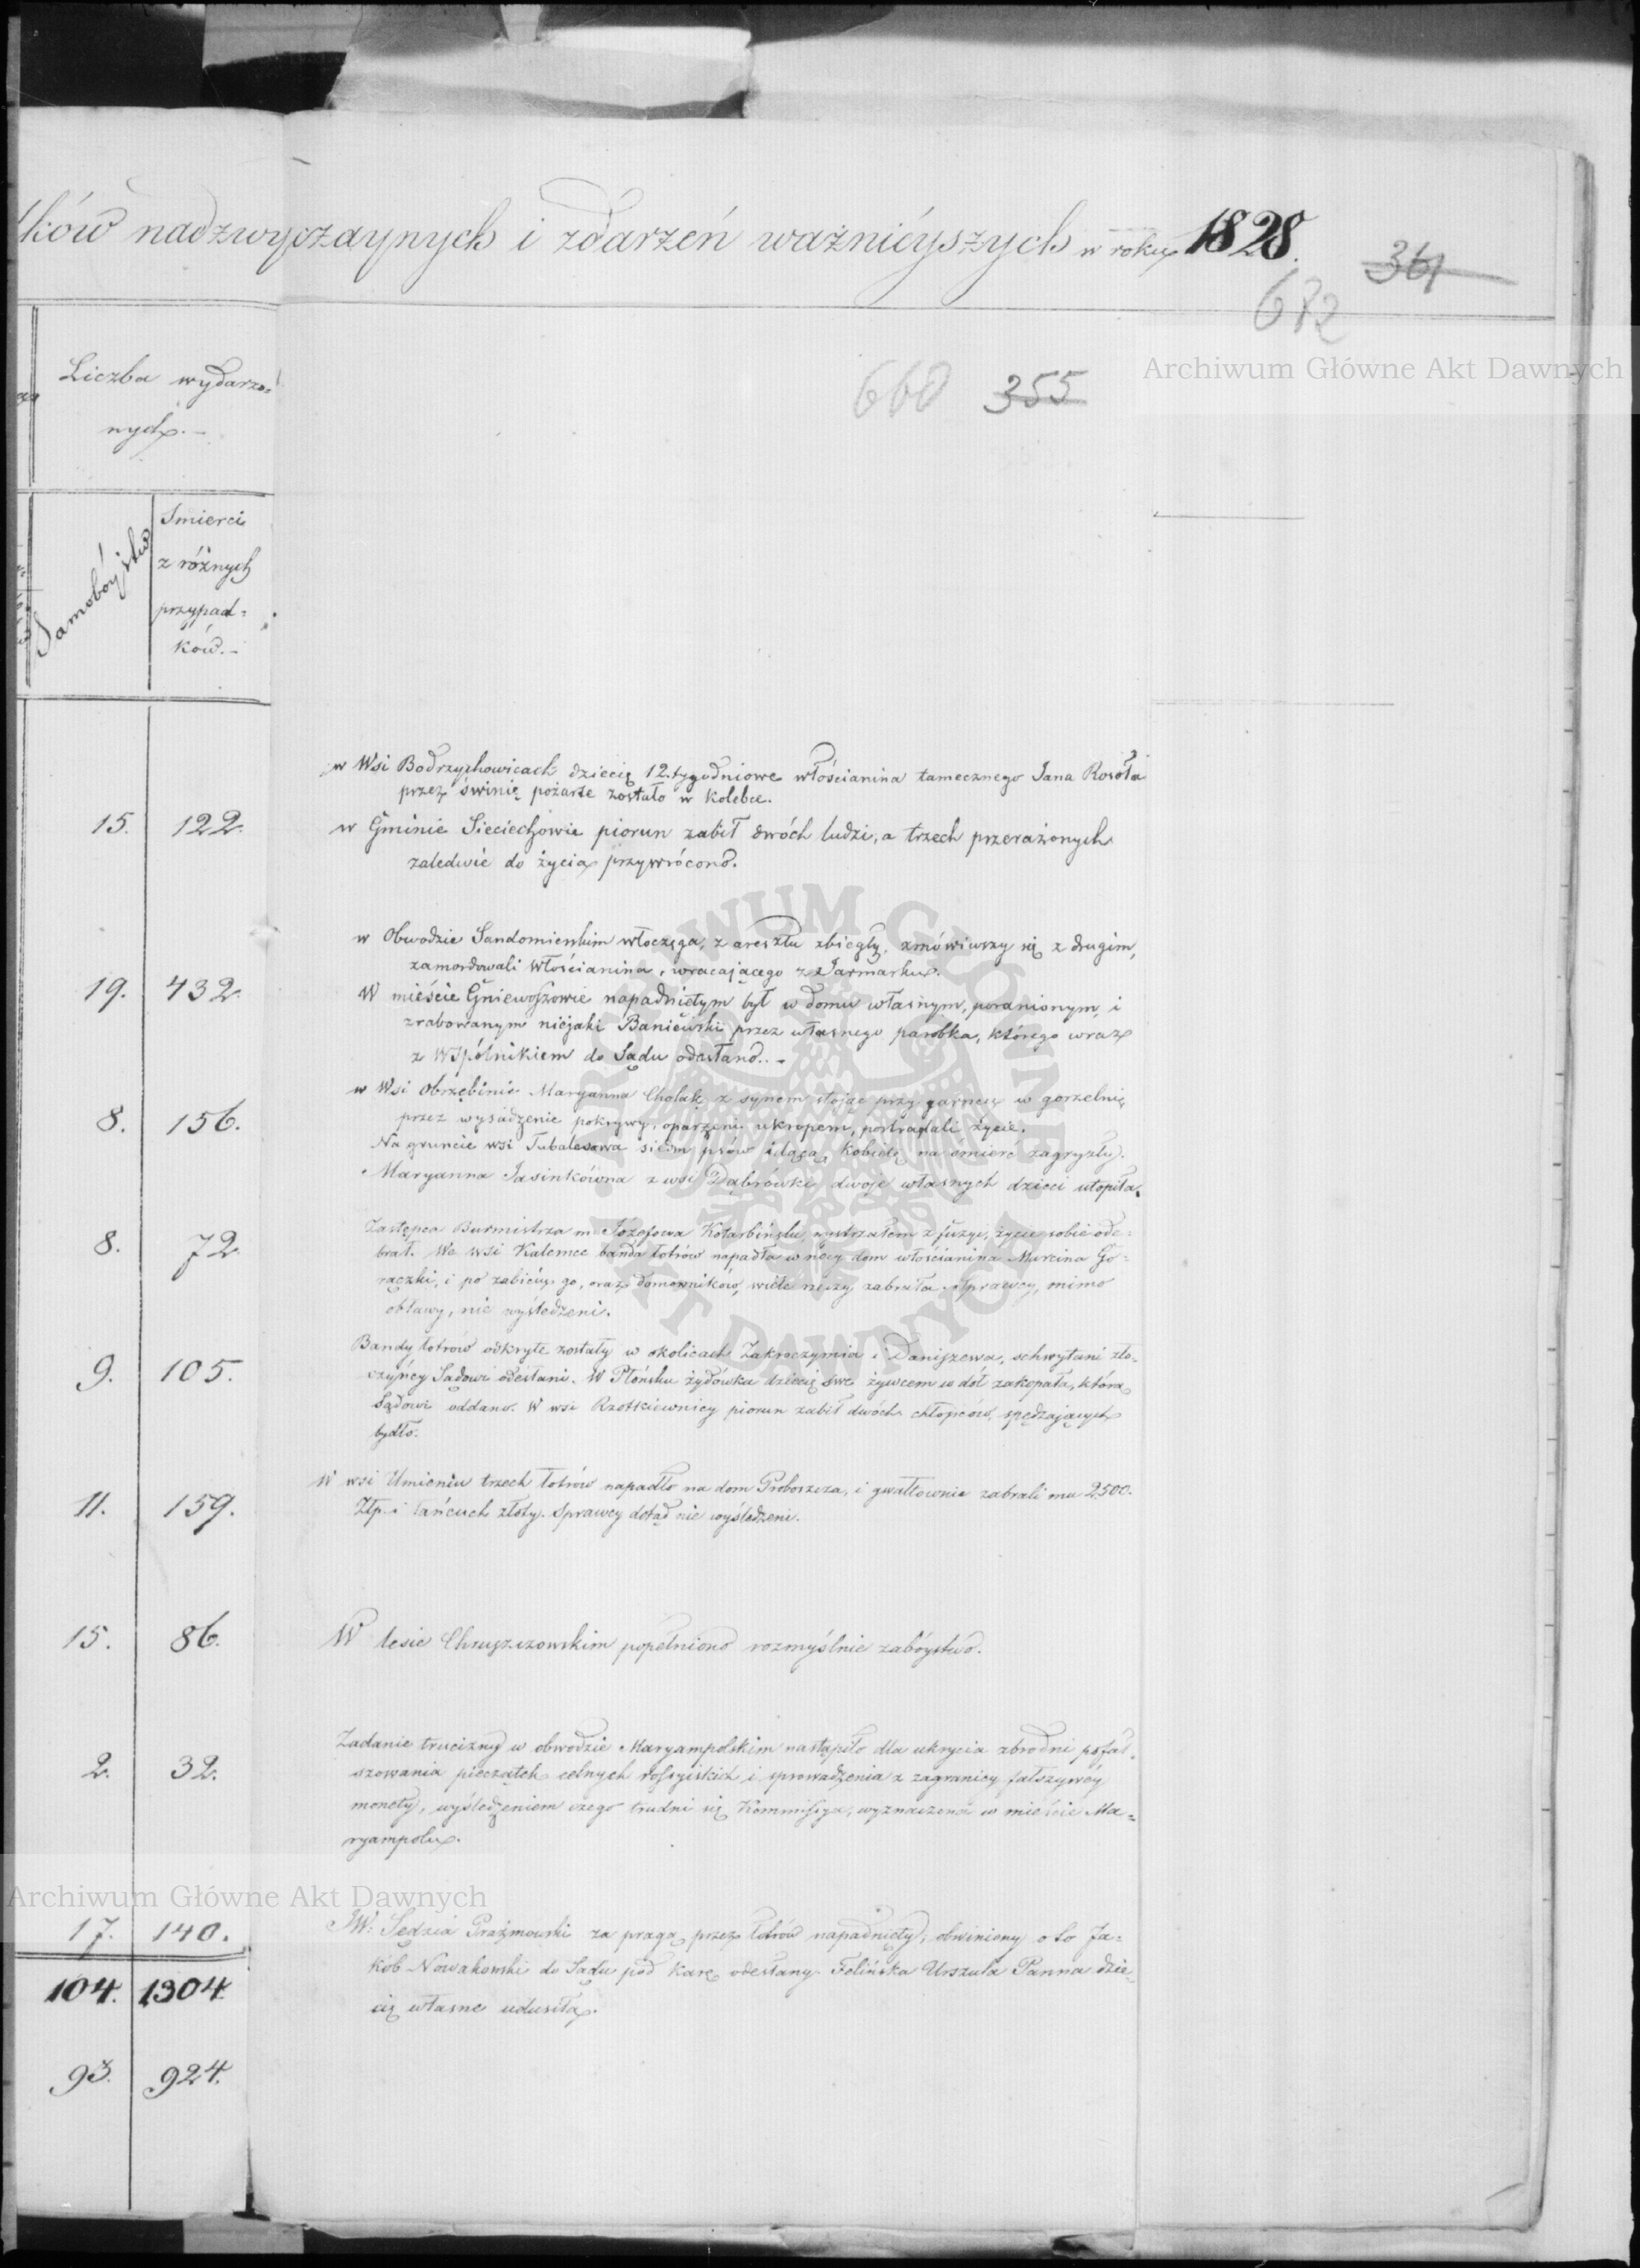 ków nadzwyczaynych i zdarzeń ważnieyszych w roku 1828.
361
672
660 355
Archiwum Główne Akt Dawnych
Liczba wydarzo=
nych.–
Samobóystw
Smierci
z różnych
przypad=
ków.–
w Wsi Bodrzychowicach dziecię 12.tygodniowe włościanina tamecznego Jana Rosoła
przez świnię pożarte zostało w kolebce.
15. 122.
w Gminie Sieciechowie piorun zabił dwóch ludzi, a trzech przerażonych
zaledwie do życia przywrócono.
w Obwodzie Sandomierskim włoczęga, z aresztu zbiegły, zmówiwszy się z drugim,
zamordowali Włościanina, wracającego z Jarmarku.
19. 432.
W mieście Gniewoszowie napadniętym był w domu własnym, poranionym i
zrabowanym niejaki Baniewski przez własnego parobka, którego wraz
z Wspólnikiem do Sądu odesłano.–
w Wsi Obrzębinie Maryanna Cholak z synem stojąc przy garncu w gorzelni,
8. 156.
przez wysadzenie pokrywy, oparzeni ukropem, postradali życie.
Na gruncie wsi Tubalesowa siedm psów idącą kobietę na śmierć zagryzły.
Maryanna Jasinkówna z wsi Dąbrówki dwoje własnych dzieci utopiła.
8. 72.
Zastępca Burmistrza m Józefowa Kotarbiński, wystrzałem z fuzyi, życie sobie ode=
brał. We wsi Kalemce banda łotrów napadła w nocy dom włościanina Marcina Go=
rączki, i po zabiciu go, oraz domowników, wiele rzeczy zabrała. Sprawcy, mimo
obławy, nie wyśledzeni.
9. 105.
Bandy łotrów odkryte zostały w okolicach Zakroczymia i Daniszewa, schwytani zło=
czyńcy Sądowi odesłani. W Płońsku żydówka dziecię swe żywcem w dół zakopała, którą
Sądowi oddano. W wsi Rzotkiewnicy piorun zabił dwóch chłopców, spędzających
bydło.
11. 159.
W wsi Umieniu trzech łotrów napadło na dom Proboszcza, i gwałtownie zabrali mu 2,500.
Złp. i łańcuch złoty. Sprawcy dotąd nie wyśledzeni.
15. 86.
W lesie Chruszczowskim popełniono rozmyślnie zabóystwo.
2. 32.
Zadanie trucizny w obwodzie Maryampolskim nastąpiło dla ukrycia zbrodni pofał=
szowania pieczątek celnych rossyiskich i sprowadzenia z zagranicy fałszywéy
monety, wyśledzeniem czego trudni się Kommissya, wyznaczona w mieście Ma=
ryampolu.
Archiwum Główne Akt Dawnych
17. 140.
JW: Sędzia Prażmowski za pragą przez łotrów napadnięty, obwiniony o to Ja=
kób Nowakowski do Sądu pod karę odesłany. Felińska Urszula Panna dzie=
cię własne udusiła.
104. 1304.
93. 924.
ARCHIWUM GŁÓWNE AKT DAWNYCH